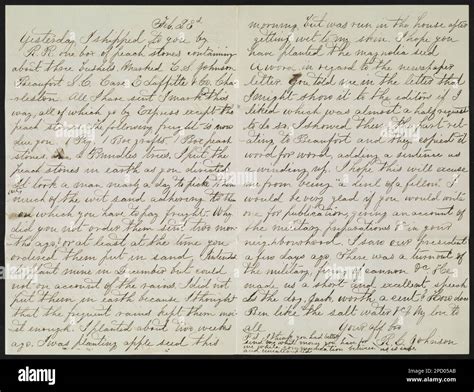 Feb 28th
Yesterday I shipped to you by
R.R. one box of peach stones containing
about three bushels Marked E S Johnson
Beaufort S.C. Care & Co Char-
leston. All I have sent I mark this
way, all of which go by Express except the
peach stones
you 1 Box peach
stones 2 Bundles trees, I put the
peach stones in earth as you directed
it took a man nearly a day to pick them
out of the wet sand adhering to them
on which you have to pay freight. Why
did you not order them sent two mos.
ago? or at least at the time you
ordered them put in sand, I intended
to plant mine in December but could
not on account of the rains I did not
put them in earth because I thought
that the frequent rains kept them moist
enough. I planted about two weeks
ago. I was planting apple seed this
morning but was run in the house after
getting wet to my skin I hope you
have planted the magnolia seed
A word in regard to the newspaper
letter. You told me in the letter that
I might show it to the editors if I
liked which was almost a half request
to do so, I showed them the part relating
to Beaufort and they copied it
word for word, adding a sentence as
a winding up. I hope this will excuse
me from being a devil of a fellow. I
would be very glad if you would write
one for publication, giving an account of
the military preparations in your
neighbourhood. I saw our president
a few days ago. There was a turnout of
the military, firing of cannon &c. He
made us a short and excellent speech
Is the dog Jack worth a cent? How does
Ben like the salt water? My love to
all Your aff bro
R. E. Johnson
P.S. I think you had better
send for what money you have for